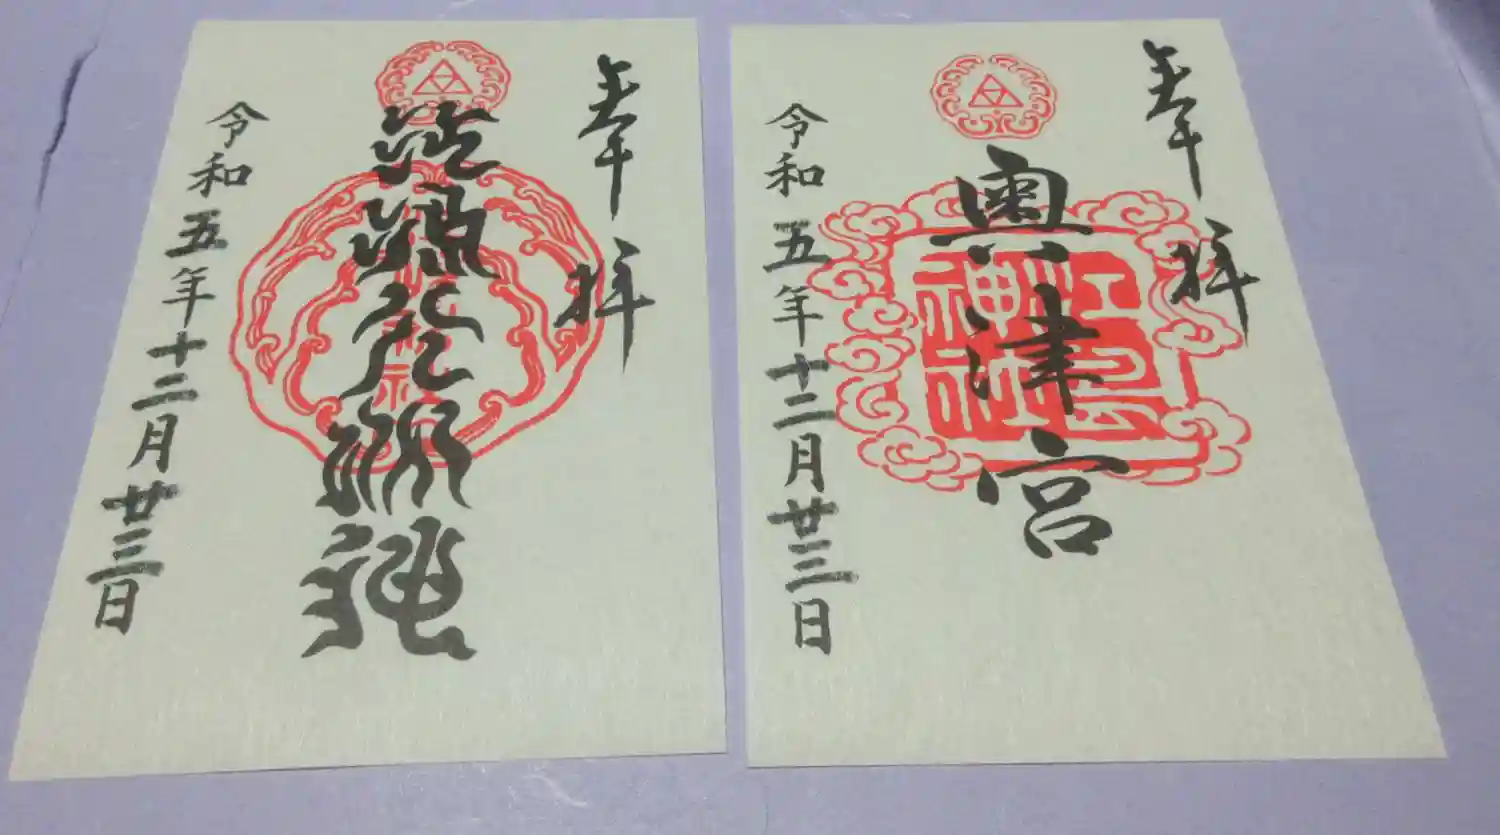 奉拝
令和五年十二月廿三日
奉拝
奥津宮
江島
神社
令和五年十二月廿三日